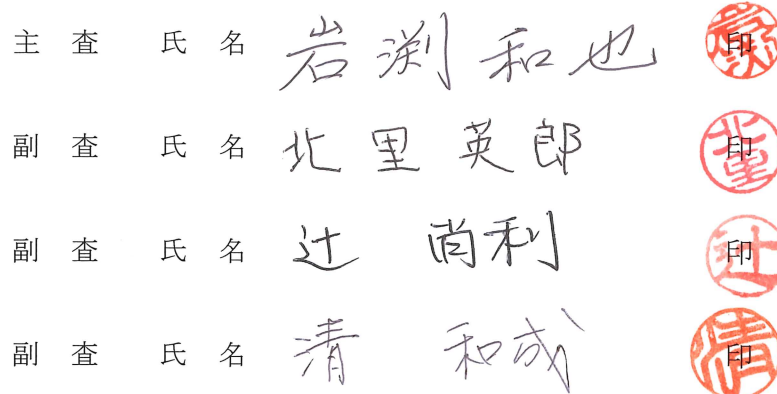 主査 氏名 岩渕和也 印
副査 氏名 北里英郎 印
副査 氏名 辻 尚利 印
副査 氏名 清 和成 印